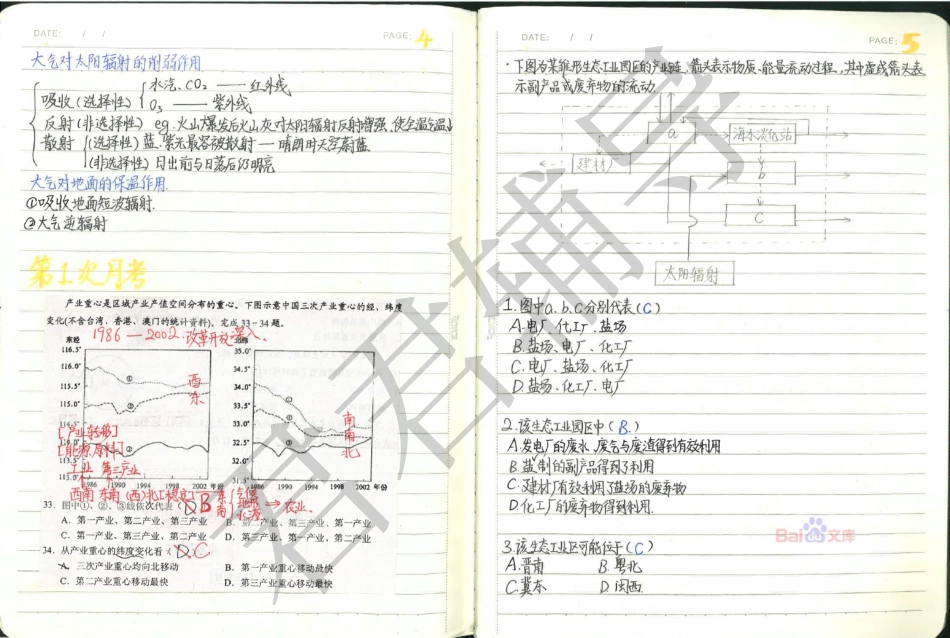 DATE: / /
PAGE: 4
大气对太阳辐射的削弱作用
吸收(选择性)
水汽、CO₂ —— 红外线
O₃ —— 紫外线
反射(非选择性) eg.火山爆发后火山灰对太阳辐射反射增强,使全温气温
散射 (选择性)蓝.紫光最容被散射 — 晴朗时天空蔚蓝
(非选择性)日出前与日落后仍明亮
大气对地面的保温作用.
①吸收地面短波辐射.
②大气逆辐射
第1次月考
产业重心是区域产业产值空间分布的重心。下图示意中国三次产业重心的经、纬度
变化(不含台湾、香港、澳门的统计资料)。完成33~34题。
1986—2002.改革开放深入、
东经
116.5°
116.0°
115.5°
115.0°
114.5°
115.0°
1986 1990 1994 1998 2002 年份
① ② ③
西
东
[产业转移]
[能源.原料]
工业 第三产业.
北纬
35.0°
34.5°
34.0°
33.5°
33.0°
32.5°
32.0°
1986 1990 1994 1998 2002 年份
① ② ③
南
南
北
西南 东南 (西)北
东 气候
南 地形
⇒农业、
33. 图中①、②、③线依次代表(D)B
A. 第一产业、第二产业、第三产业
B. 第二产业、第三产业、第一产业
C. 第一产业、第三产业、第二产业
D. 第三产业、第一产业、第二产业
34. 从产业重心的纬度变化看(D)C
A. 三次产业重心均向北移动
B. 第一产业重心移动最快
C. 第二产业重心移动最快
D. 第三产业重心移动最快
DATE: / /
PAGE: 5
·下图为某雏形生态工业园区的产业链、箭头表示物质、能量流动过程,其中虚线箭头表
示副产品或废弃物的流动.
a
海水淡化站
建材厂
b
C
太阳辐射
1.图中a.b.c分别代表(C)
A.电厂.化工厂.盐场
B.盐场、电厂、化工厂
C.电厂、盐场、化工厂
D.盐场.化工厂.电厂
2.该生态工业园区中(B.)
A.发电厂的废水、废气与废渣得到有效利用
B.盐制的副产品得到了利用
C.建材厂有效利用了盐场的废弃物
D.化工厂的废弃物得到利用.
3.该生态工业区可能位于(C)
A.晋南 B.粤北
C.冀东 D.闽西.
Bai文库
君君辅导